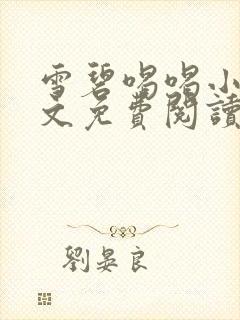 雪碧喝喝小
文免費閱讀
劉晏良